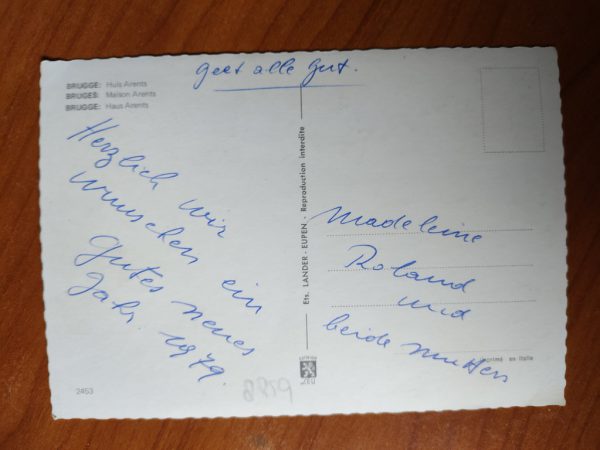 BRUGGE: Huis Arents
BRUGES: Maison Arents
BRÜGGE: Haus Arents
geet alle gut.
Herzlich wir
wunschen ein
gutes neues
Jahr. 1979.
Ets. LANDER - EUPEN - Reproduction interdite
Madeleine
Roland
und
beide Mutters
Imprimé en Italie
2453